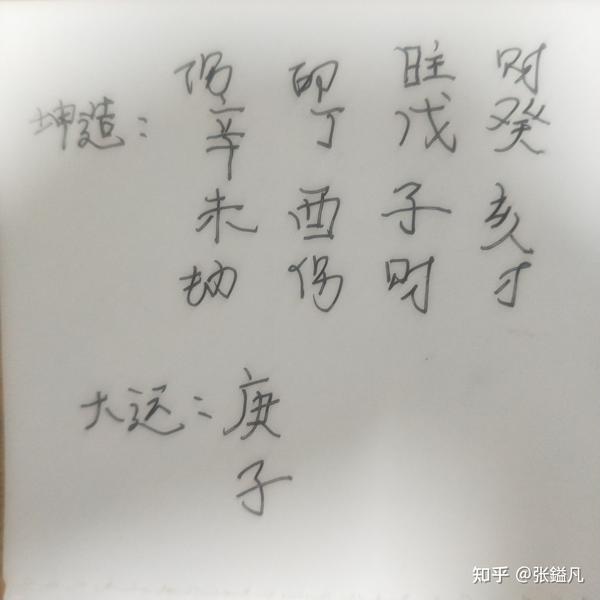 伤 印 日主 财
坤造： 辛 丁 戊 癸
未 酉 子 亥
劫 伤 财 才
大运：庚
子
知乎 @张鎰凡